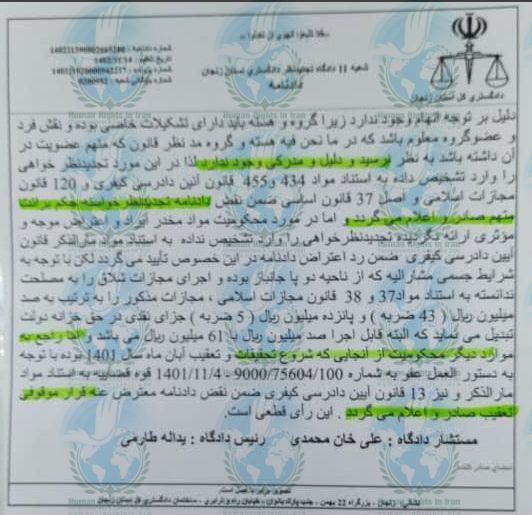 «فلا تتبعوا الهوی ان تعدلوا»
شعبه 11 دادگاه تجدیدنظر دادگستری استان زنجان
دادنامه
دادگستری کل استان زنجان
شماره دادنامه :
تاریخ تنظیم : 1402/11/14
شماره پرونده :
شماره بایگانی شعبه : 0200692
دلیل بر توجه اتهام وجود ندارد زیرا گروه و هسته باید دارای تشکیلات خاصی بوده و نقش فرد
و عضوگروه معلوم باشد که در ما نحن فیه هسته و گروه مد نظر قانون که متهم عضویت در
آن داشته باشد به نظر نرسید و دلیل و مدرکی وجود ندارد لذا در این مورد تجدیدنظر خواهی
را وارد تشخیص داده به استناد مواد 434 و455 قانون آئین دادرسی کیفری و 120 قانون
مجازات اسلامی و اصل 37 قانون اساسی ضمن نقض دادنامه تجدیدنظرخواسته حکم برائت
متهم صادر و اعلام می گردد و اما در مورد محکومیت مواد مخدر ایراد و اعتراض موجه و
مؤثری ارائه نگردیده تجدیدنظرخواهی را وارد تشخیص نداده به استناد مواد مارالذکر قانون
آیین دادرسی کیفری ضمن رد اعتراض دادنامه در این خصوص تأیید می گردد لکن با توجه به
شرایط جسمی مشارالیه که از ناحیه دو پا جانباز بوده و اجرای مجازات شلاق را به مصلحت
ندانسته به استناد مواد37 و 38 قانون مجازات اسلامی ، مجازات مذکور را به ترتیب به صد
میلیون ریال ( 43 ضربه ) و پانزده میلیون ریال ( 5 ضربه ) جزای نقدی در حق خزانه دولت
تبدیل می نماید که البته قابل اجرا صد میلیون ریال با 61 میلیون ریال می باشد و اما راجع به
موارد دیگر محکومیت از آنجایی که شروع تحقیقات و تعقیب آبان ماه سال 1401 بوده با توجه
به دستور العمل عفو به شماره 9000/75604/100 - 1401/11/4 قوه قضاییه به استناد مواد
مارالذکر و نیز 13 قانون آیین دادرسی کیفری ضمن نقض دادنامه معترض عنه قرار موقوفی
تعقیب صادر و اعلام می گردد . این رأی قطعی است.
مستشار دادگاه : علی خان محمدی رئیس دادگاه : یداله طارمی
امضای صادر کننده
تصویر برابر با اصل است.
نشانی: زنجان - بزرگراه 22 بهمن - جنب پارک بانوان - خیابان راه و ترابری - ساختمان دادگستری کل استان زنجان
Human Rights In Iran